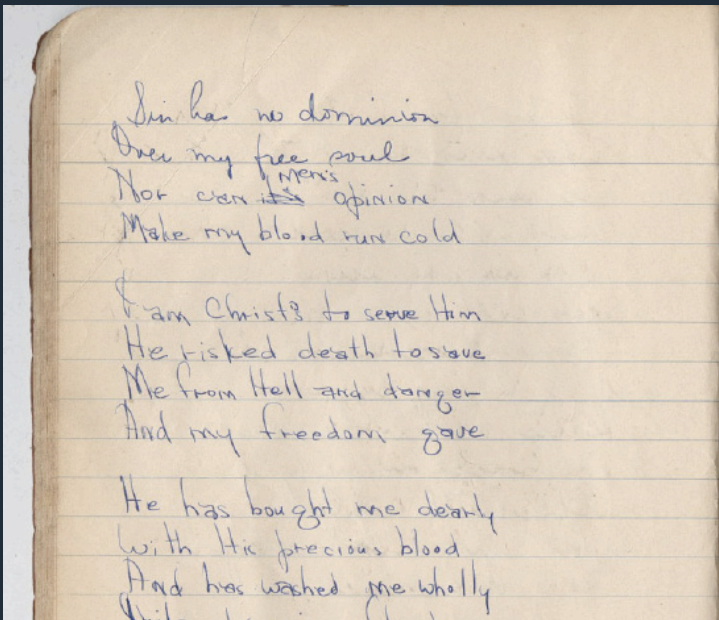 Sin has no dominion
Over my free soul
Men's
Nor can opinion
Make my blood run cold
I am Christ's to serve Him
He risked death to save
Me from Hell and danger
And my freedom gave
He has bought me dearly
With His precious blood
And has washed me wholly